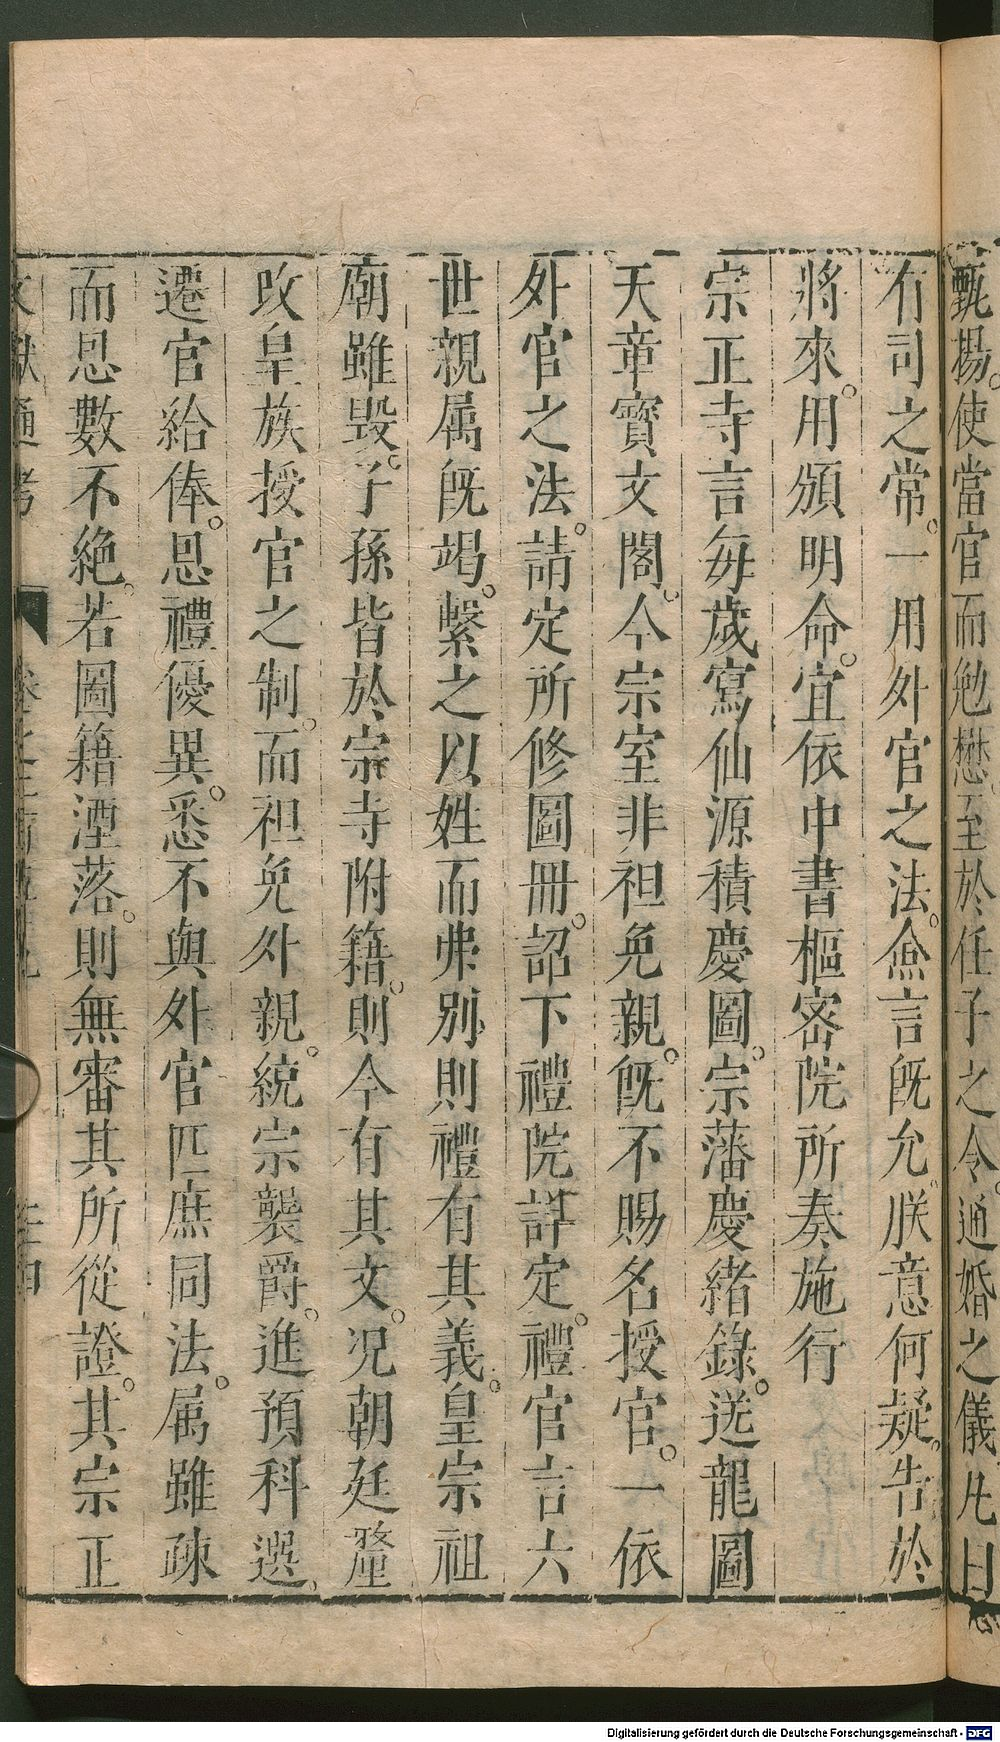 甄揚。使當官而勉懋。至於任子之令。通婚之儀。凡曰
有司之常。一用外官之法。僉言旣允。朕意何疑。告於
將來。用頒明命。宜依中書樞密院所奏施行
宗正寺言每歲寫仙源積慶圖。宗藩慶緒錄。送龍圖
天章寶文閣。今宗室非袒免親。旣不賜名授官。一依
外官之法。請定所修圖冊。詔下禮院詳定。禮官言六
世親属旣竭。繫之以姓而弗別。則禮有其義。皇宗祖
廟雖毀。子孫皆於宗寺附籍。則今有其文。况朝廷釐
改皇族授官之制。而袒免外親。統宗襲爵。進預科選。
遷官給俸。恩禮優異。悉不與外官匹庶同法。属雖疎
而恩數不絕。若圖籍湮落。則無審其所從證。其宗正
文獻通考
Digitalisierung gefördert durch die Deutsche Forschungsgemeinschaft - DFG